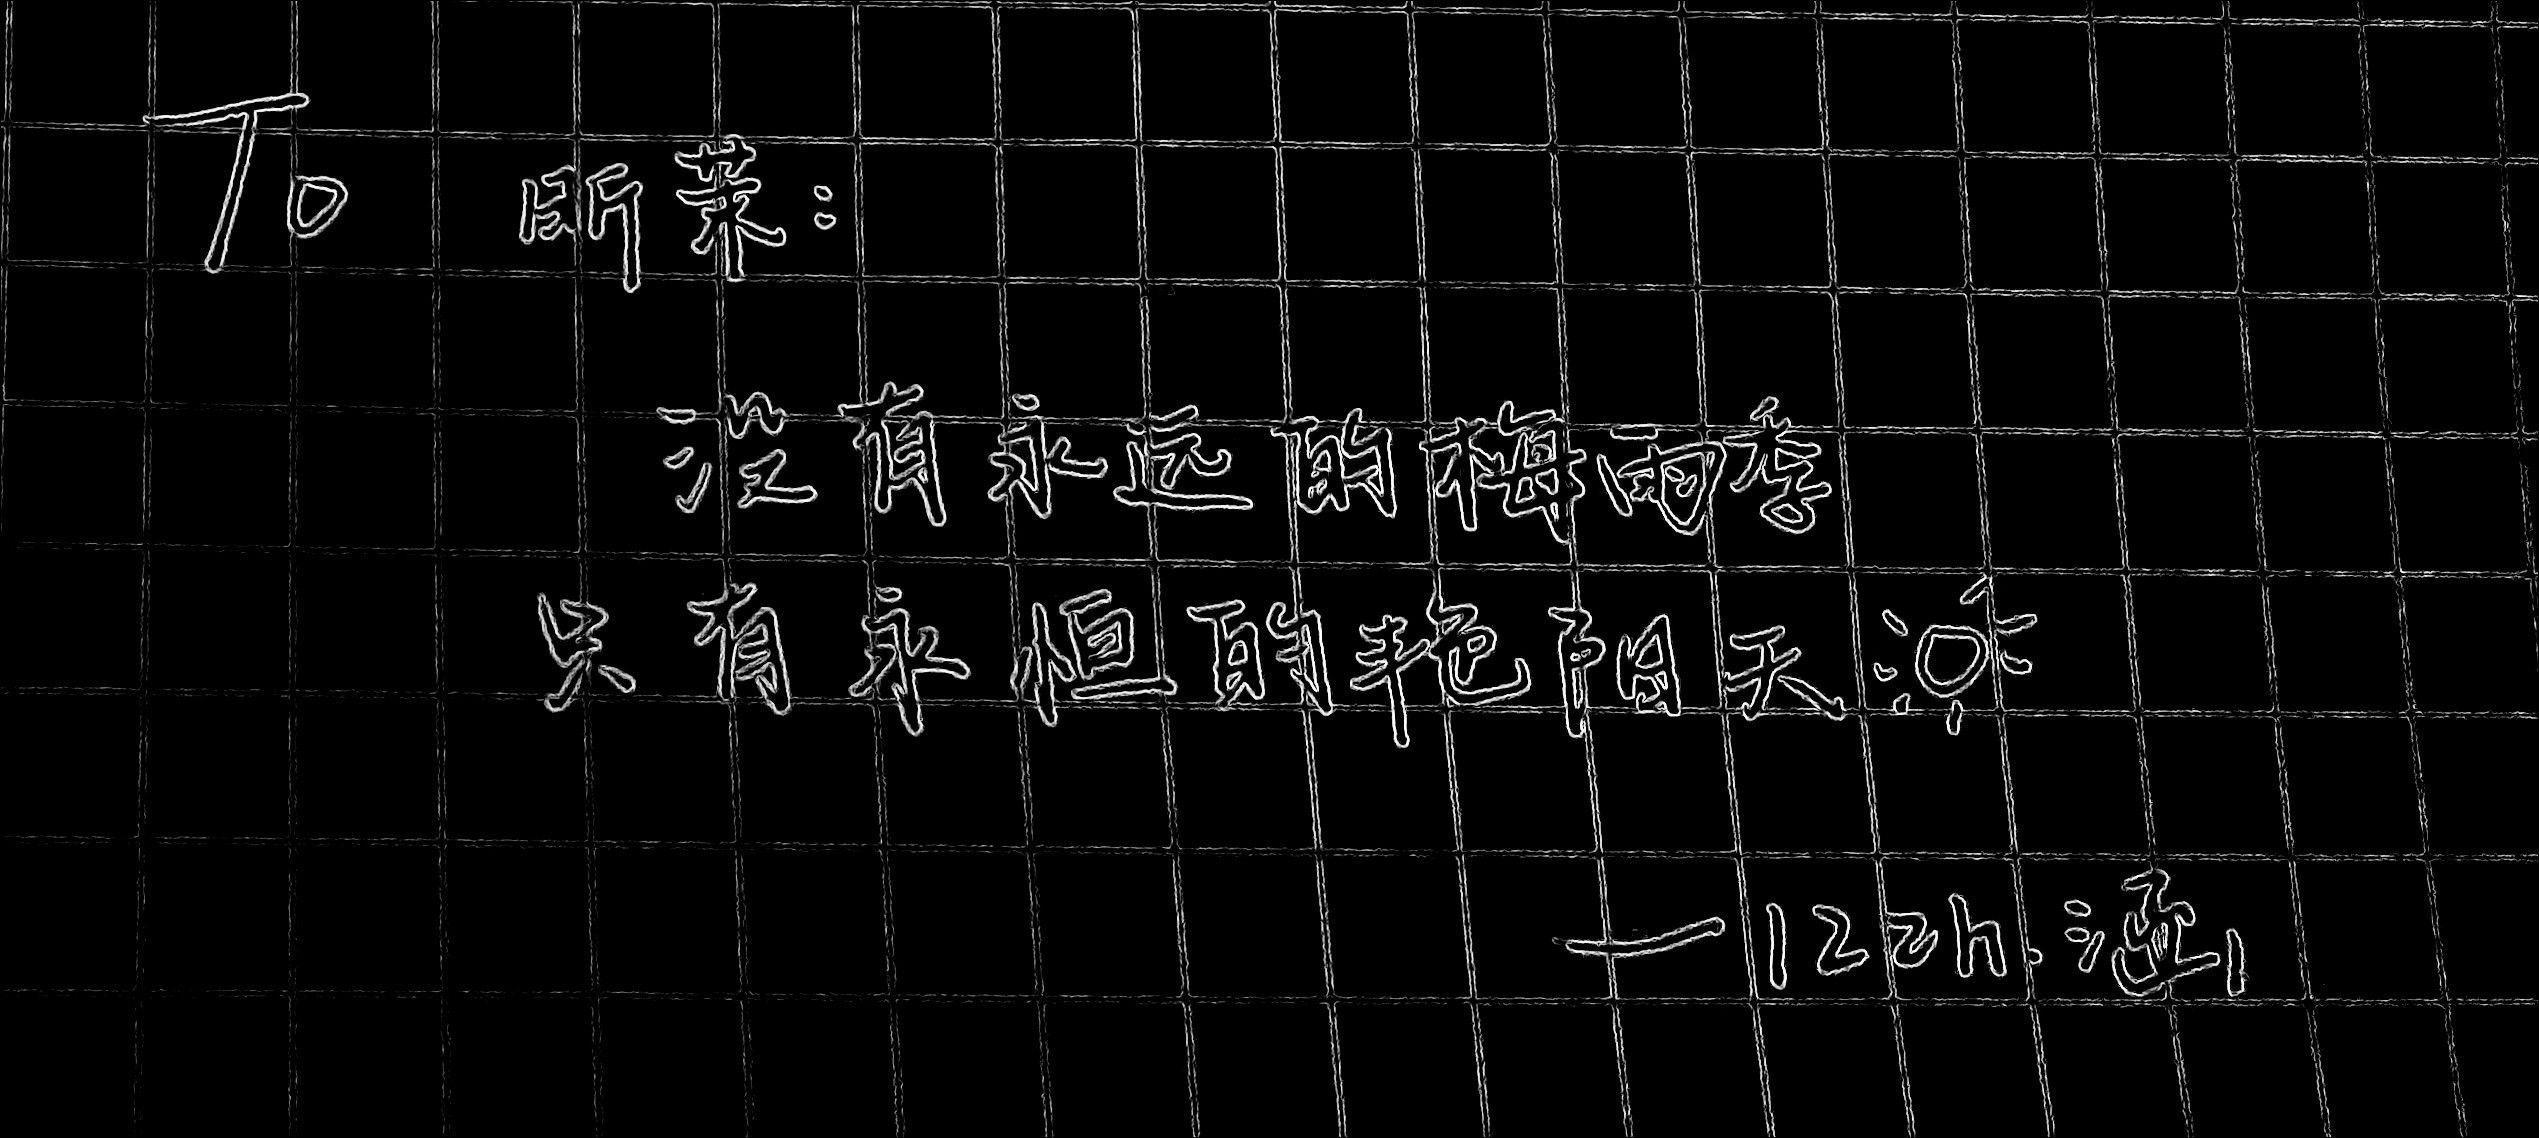 To 昕莱:
没有永远的梅雨季
只有永恒的艳阳天
—12zh.涵